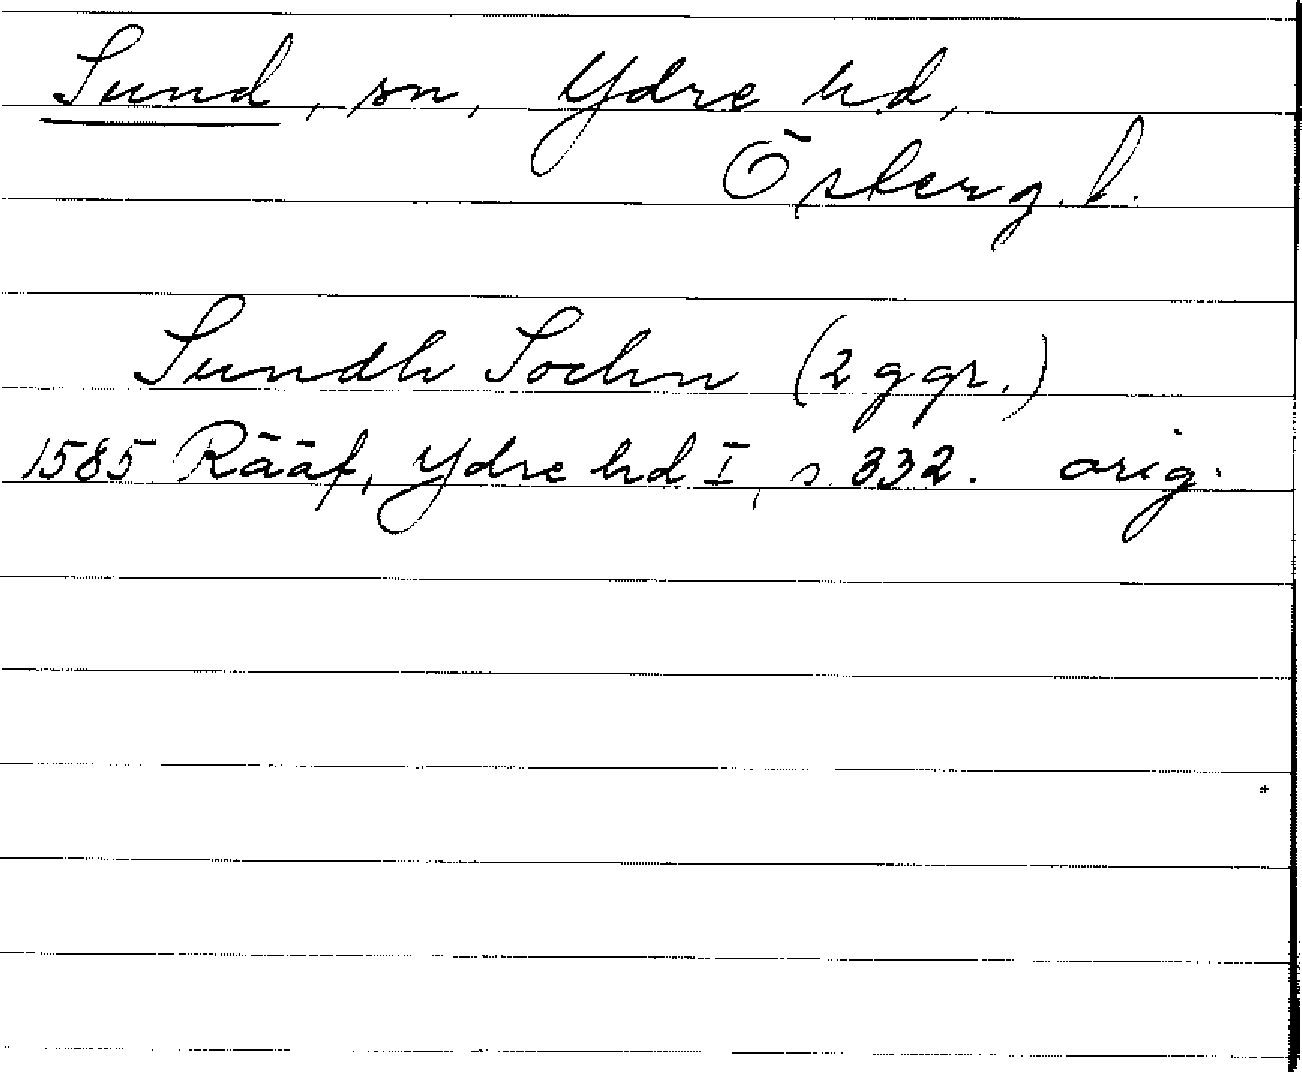 Sund, sn, Ydre hd,
Österg. l.
Sundh Sochn (2 ggr.)
1585 Rääf, Ydre hd I, s. 332. orig.